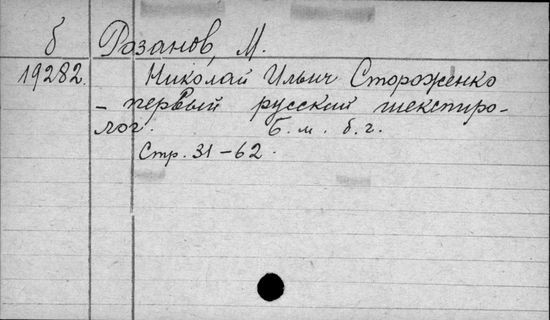 б Розанов, М.
19282. Николай Ильич Стороженко
– первый русский шекспиро-
лог. Б. м. б. г.
Стр. 31–62.